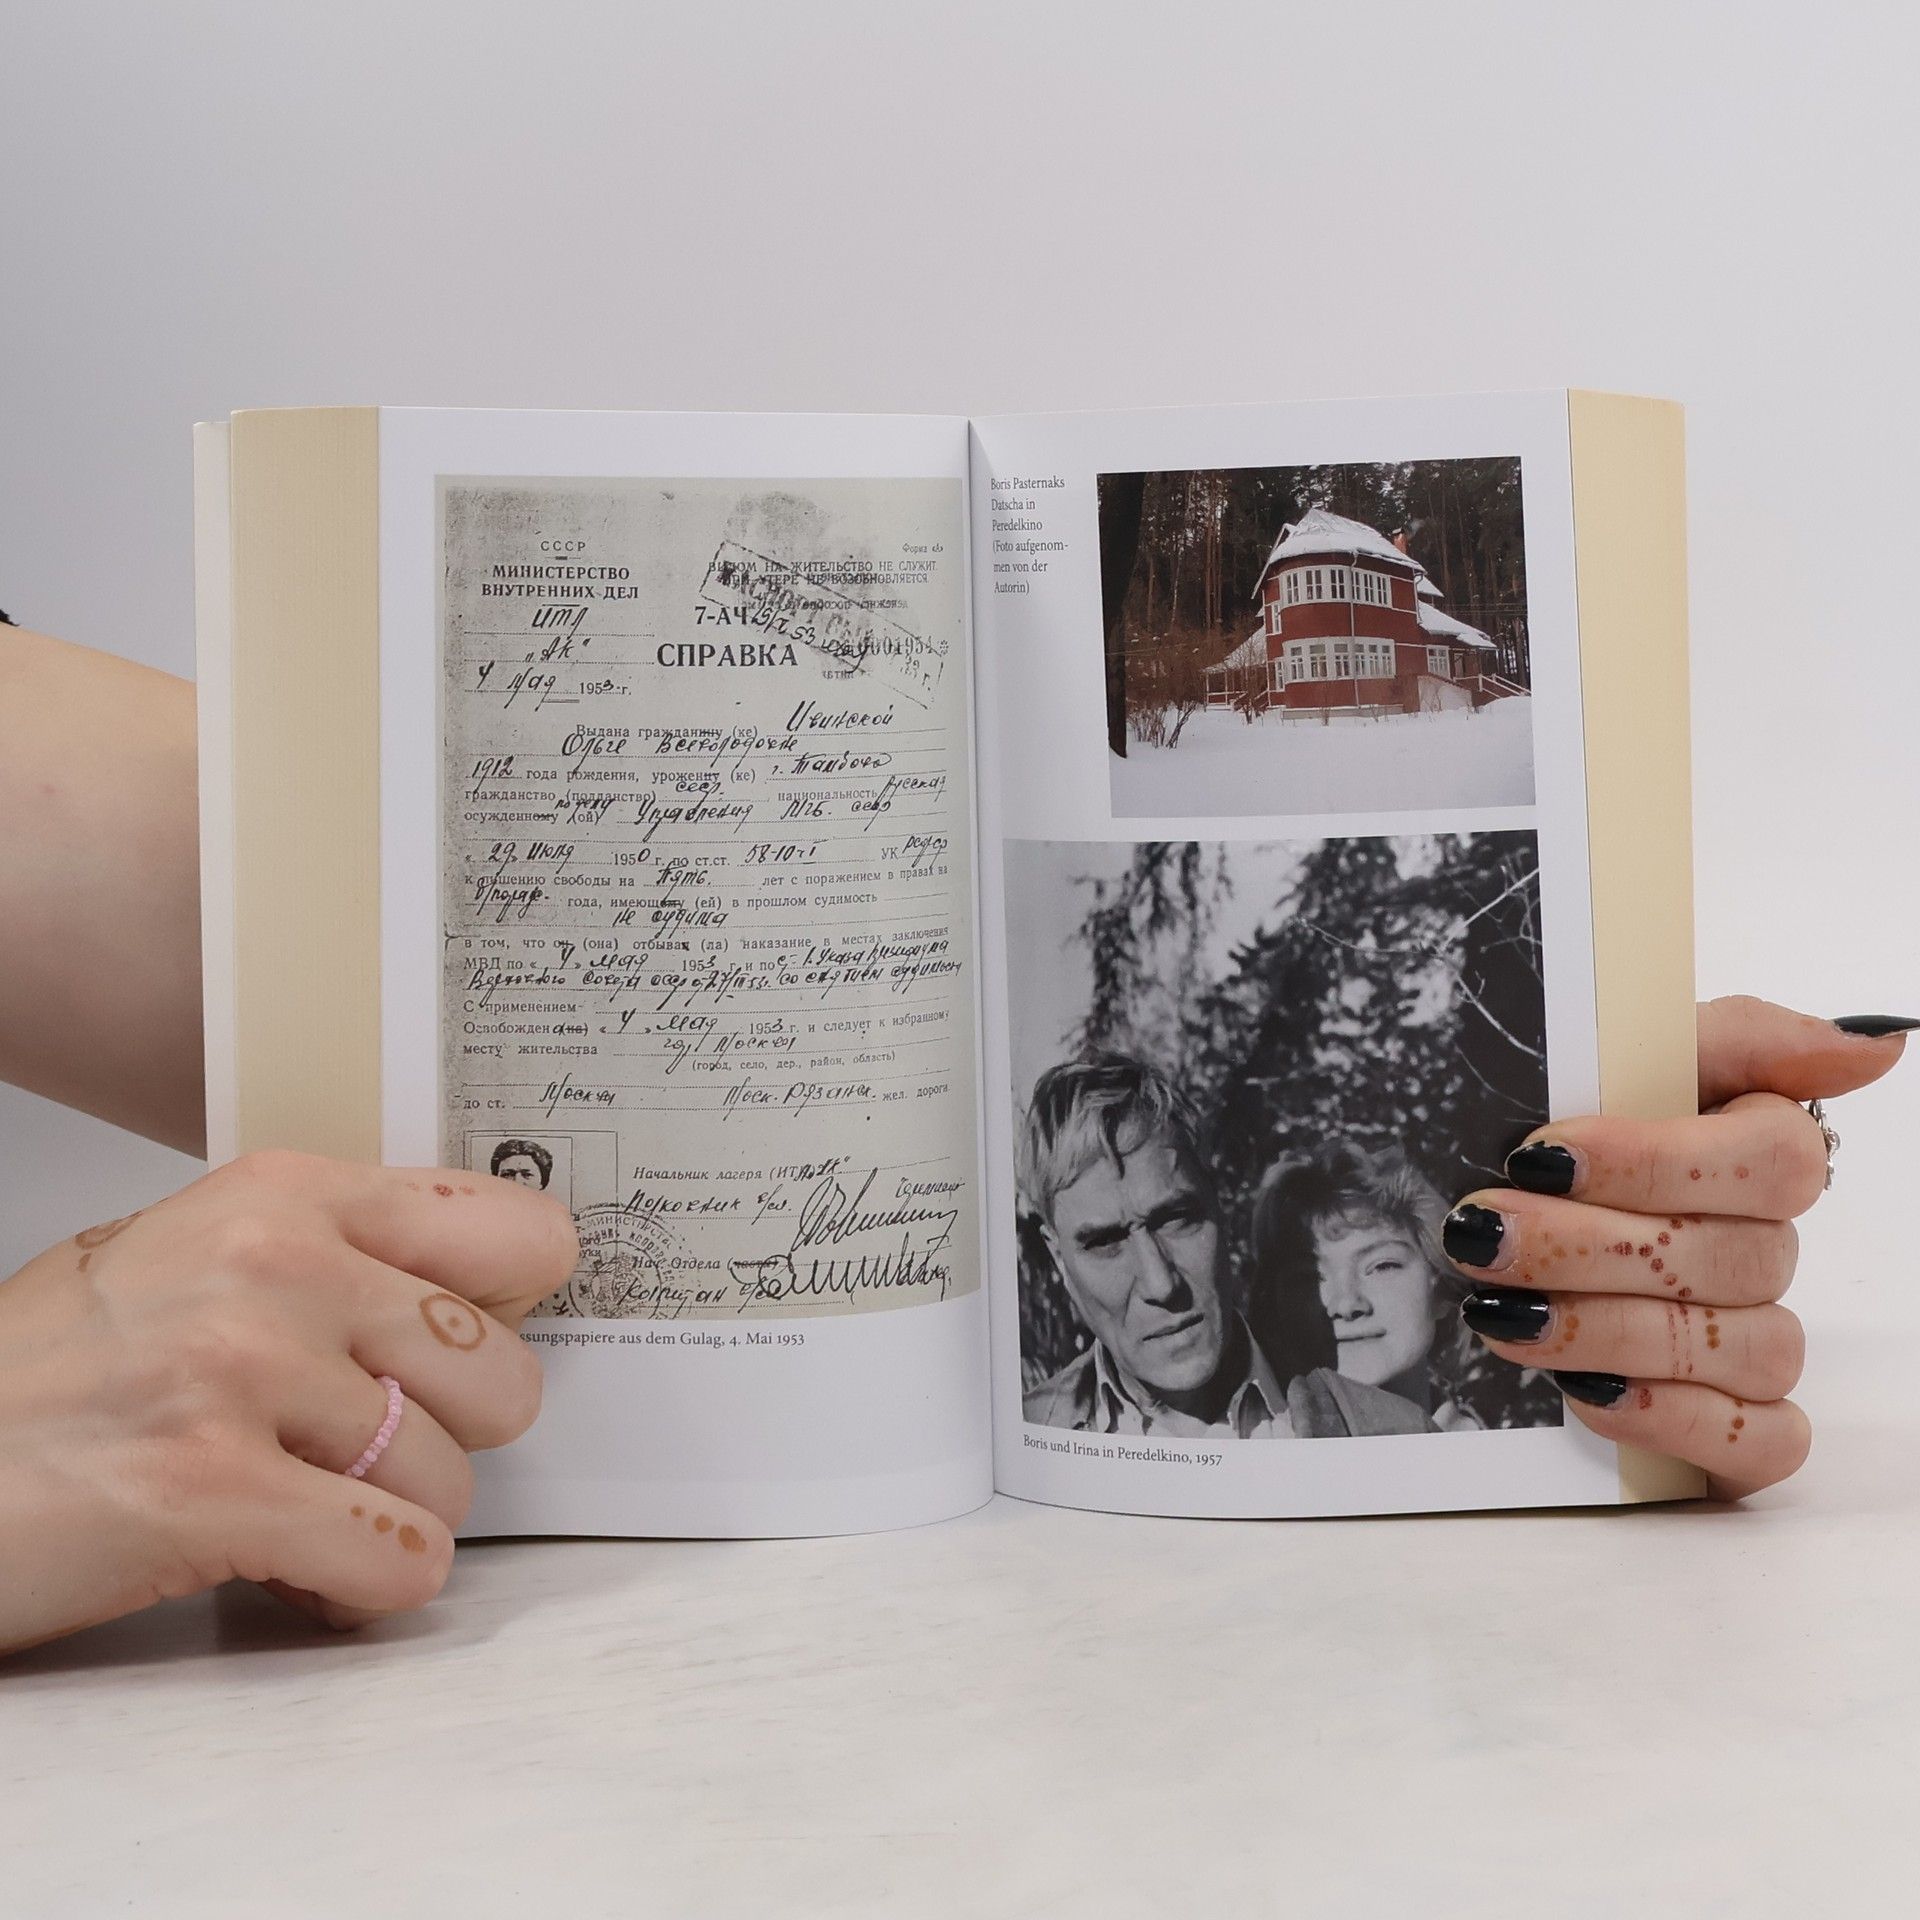 СССР
МИНИСТЕРСТВО
ВНУТРЕННИХ ДЕЛ
ИТЛ
"АК"
4 мая 1953 г.
Форма «А»
ВИДОМ НА ЖИТЕЛЬСТВО НЕ СЛУЖИТ.
ПРИ УТЕРЕ НЕ ВОЗОБНОВЛЯЕТСЯ.
7-АЧ
0001954
СПРАВКА
Выдана гражданину (ке) Ивинской
Ольге Всеволодовне
1912 года рождения, уроженцу (ке) г. Тамбова
гражданство (подданство) ссср. национальность русская
осужденному (ой) по делу Управления МГБ. ссср
„29„ июля 1950 г. по ст.ст. 58-10 ч I УК рсфср
к лишению свободы на Пять. лет с поражением в правах на
года, имеющему (ей) в прошлом судимость
не судима
в том, что он (она) отбывал (ла) наказание в местах заключения
МВД по « 4 » мая 1953 г. и по ст. 1. Указа Президиума
Верховного Совета ссср от 27/III 53г. со снятием судимости
С применением
Освобожден а(на) « 4 » мая 1953 г. и следует к избранному
месту жительства гор. Москва
(город, село, дер., район, область)
до ст. Москва Моск. Рязанск. жел. дороги
Начальник лагеря (ИТЛ) "АК"
Полковник
Нач. Отдела (части)
Капитан
ssungspapiere aus dem Gulag, 4. Mai 1953
Boris Pasternaks
Datscha in
Peredelkino
(Foto aufgenom-
men von der
Autorin)
Boris und Irina in Peredelkino, 1957